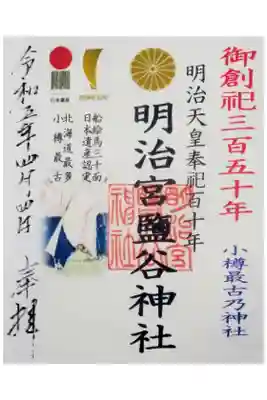 御創祀三百五十年
小樽最古乃神社
明治天皇奉祀百十年
明治宮鹽谷神社
船絵馬三十面
日本遺産認定
北海道最多
小樽最古
令和五年四月四日
奉拝